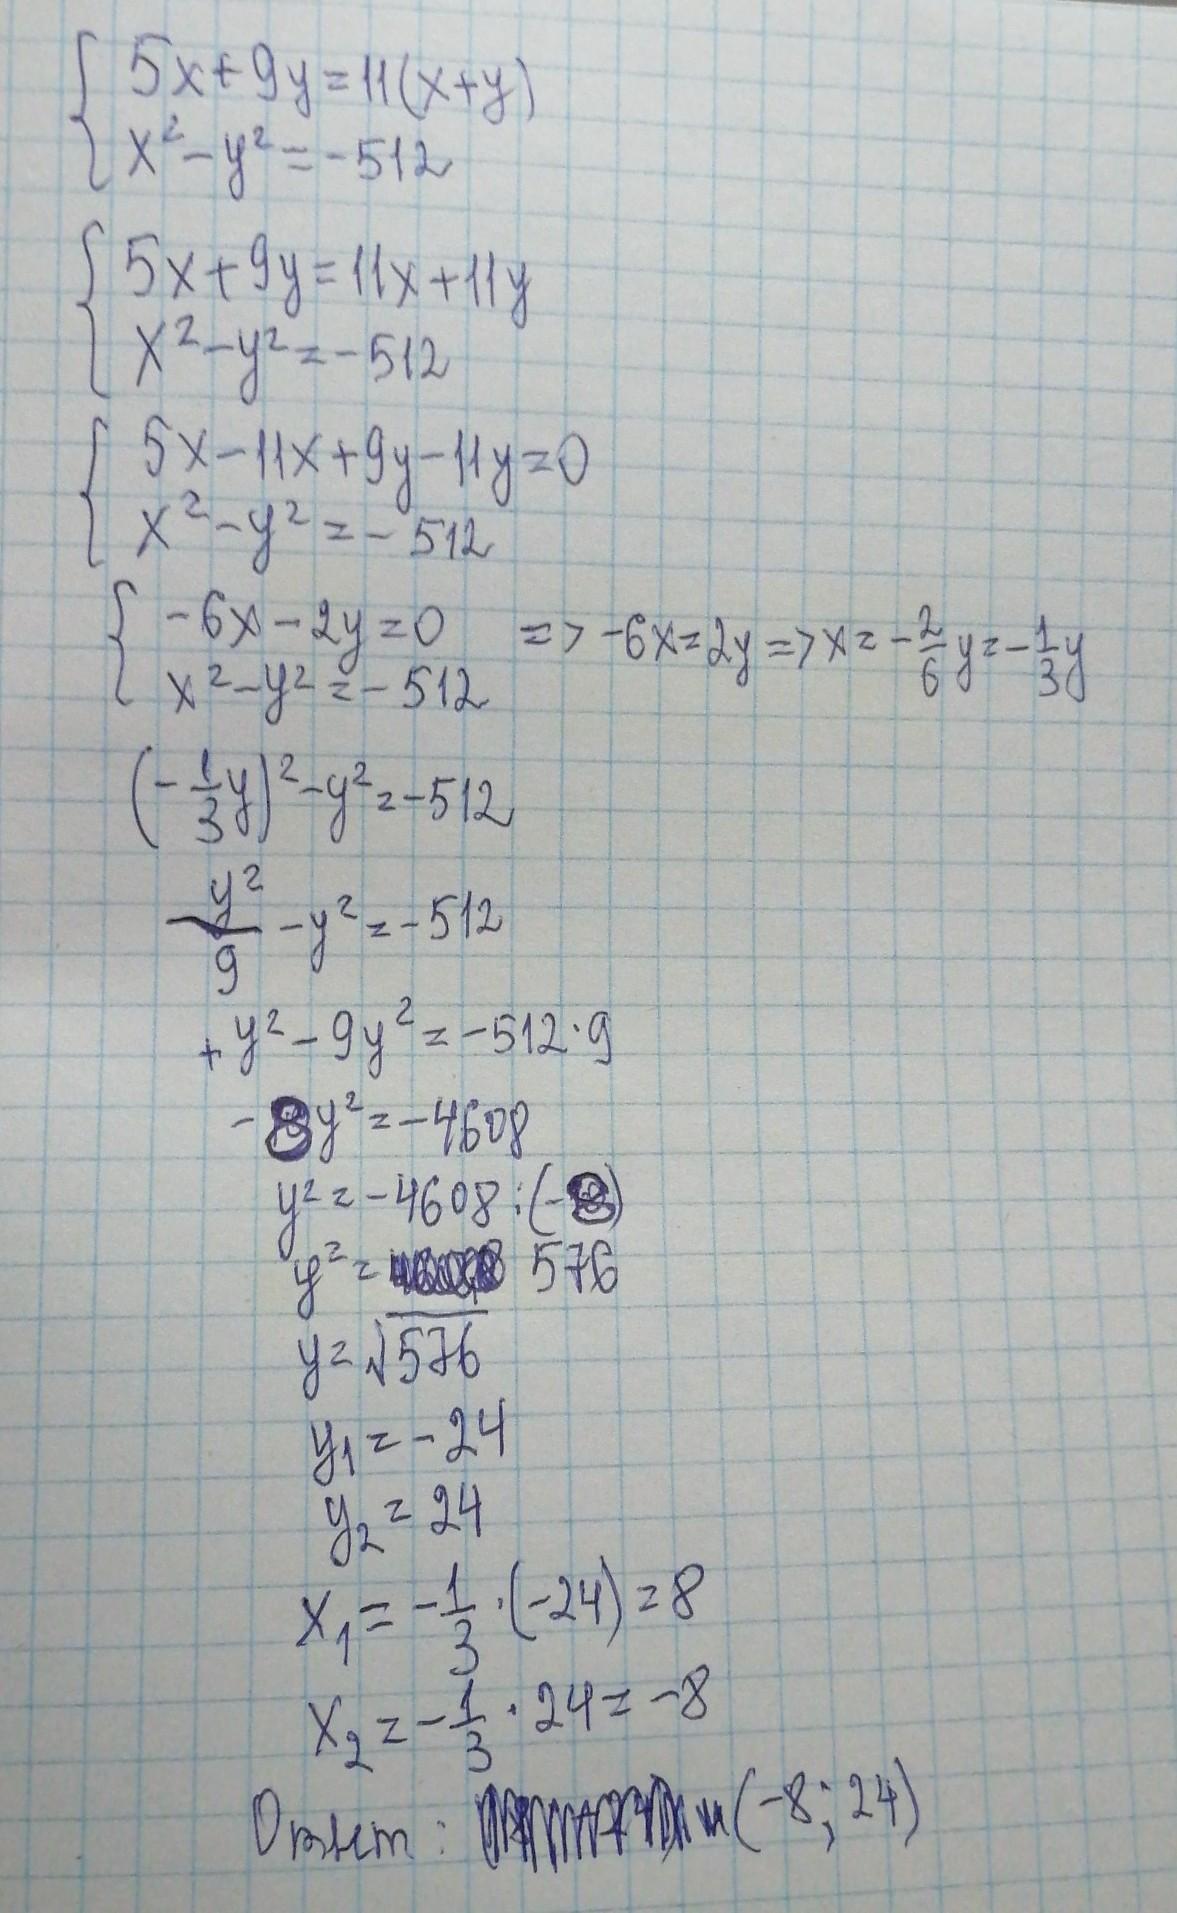 5x+9y=11(x+y)
x²-y²=-512
5x+9y=11x+11y
x²-y²=-512
5x-11x+9y-11y=0
x²-y²=-512
-6x-2y=0 => -6x=2y => x=-2/6y=-1/3y
x²-y²=-512
(-1/3y)²-y²=-512
y²/9-y²=-512
+y²-9y²=-512·9
-8y²=-4608
y²=-4608:(-8)
y²= 576
y=√576
y₁=-24
y₂=24
x₁=-1/3·(-24)=8
x₂=-1/3·24=-8
Ответ: (-8; 24)